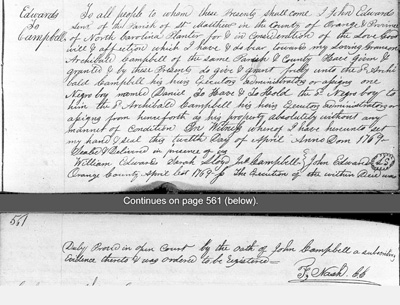 Edwards
To
Campbell
To all people to whom these Presents shall come I John Edwards
senr of the Parish of St Matthew in the County of Orange & Province
of North Carolina Planter for & in Consideration of the Love Good
will & affection which I have & do bear toward my Loving Grandson
Archibald Campbell of the same Parish & County Have Given &
granted & by these Presents do give & grant fully unto the sd Archi
bald Campbell his heirs Executors administrators or assigns one
Negro boy named Daniel To Have & To Hold the sd Negro boy to
him the sd Archibald Campbell his heirs Executors administrators or
assigns from henceforth as his property absolutely without any
manner of Condition In Witness whereof I have hereunto set
my hand & seal this twelfth Day of April Anno Dom 1769-
Sealed & Delivered in presence of us
William Edwards Sarah Lloyd Jno Campbell } John Edwards
Orange County April Court 1769 The Execution of the within Deed was
Continues on page 561 (below).
561
Duly Proved in open Court by the oath of John Campbell a subscribing
Evidence thereto & was ordered to be Registered
F. Nash CC